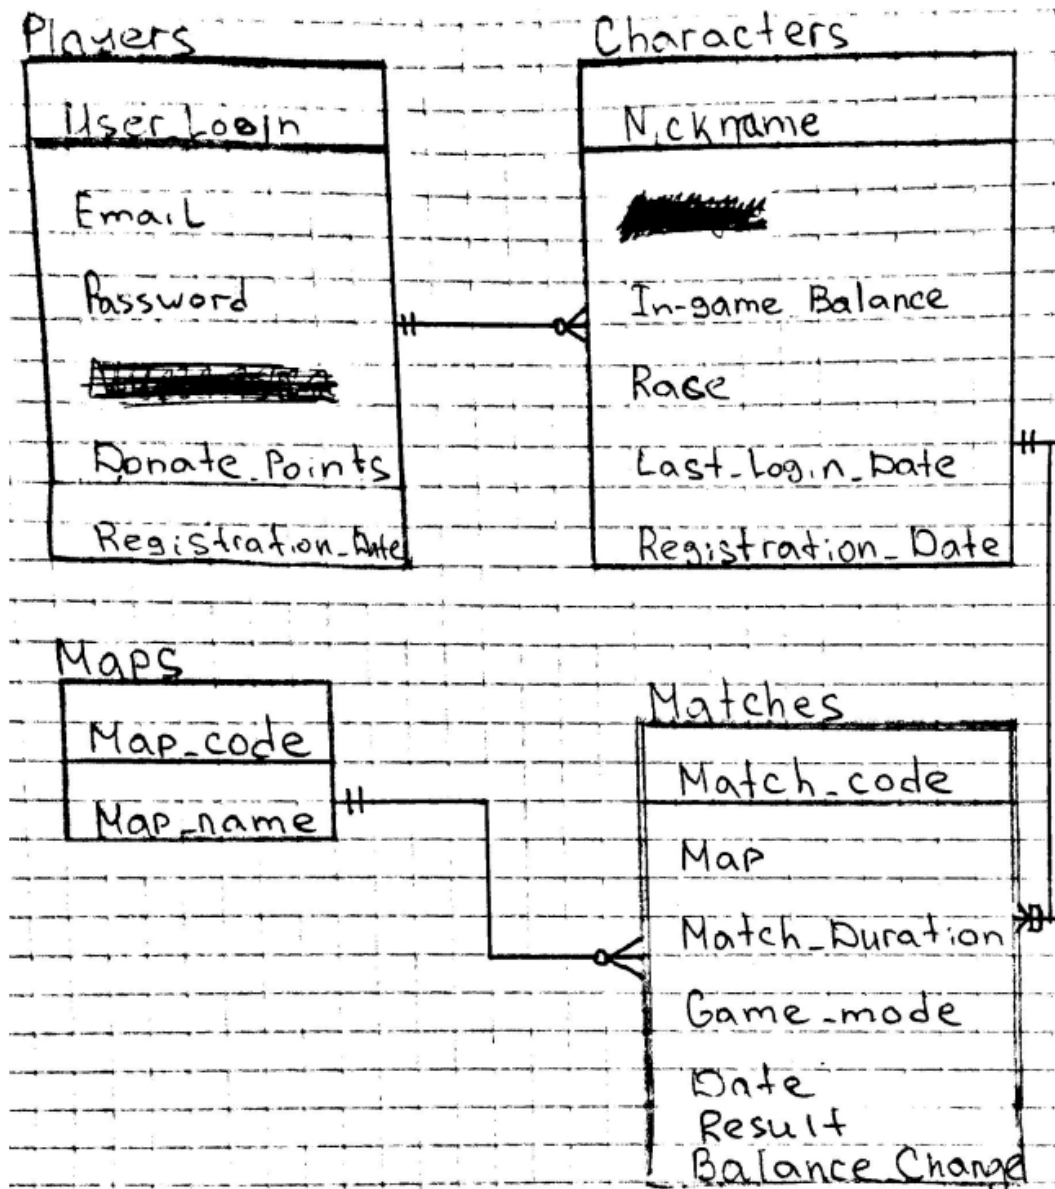 Players
User_Login
Email
Password
Donate_Points
Registration_Date
Characters
Nickname
In-game Balance
Rase
Last_Login_Date
Registration_Date
Maps
Map_code
Map_name
Matches
Match_code
Map
Match_Duration
Game_mode
Date
Result
Balance_Change